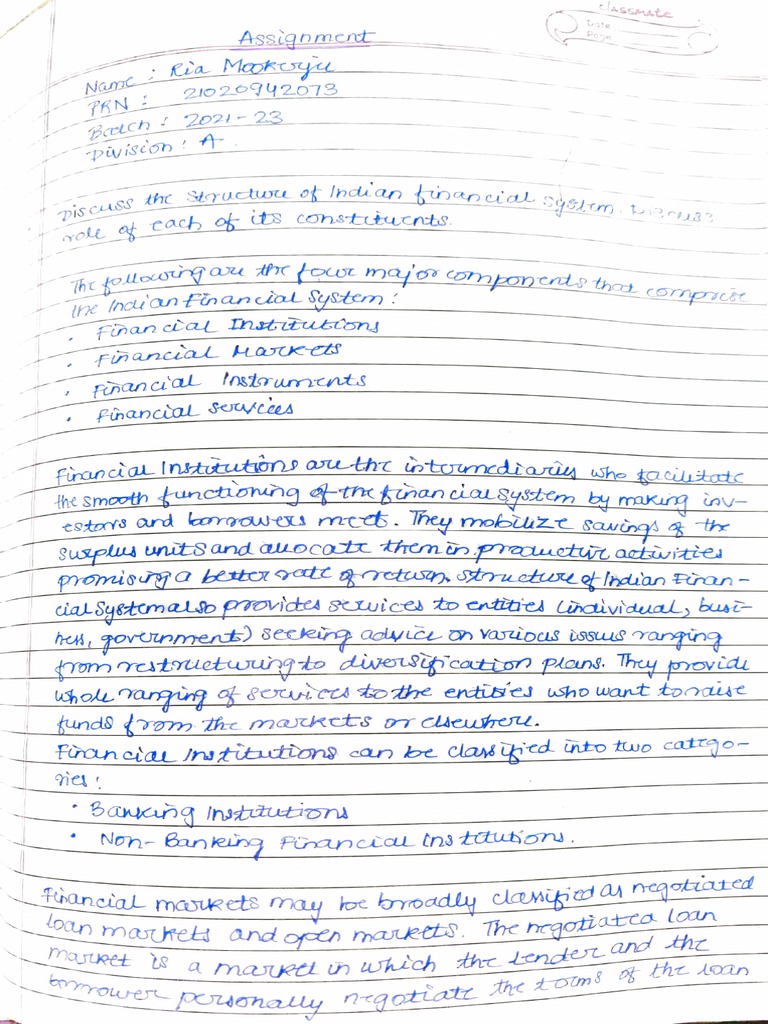 classmate
Date
Page
Assignment
Name : Ria Mookerjee
PRN : 21020942073
Batch : 2021-23
Division : A
Discuss the structure of Indian financial system. Discuss
role of each of its constituents.
The following are the four major components that comprise
the Indian Financial System :
• Financial Institutions
• Financial Markets
• Financial Instruments
• Financial services
Financial Institutions are the intermediaries who facilitate
the smooth functioning of the financial system by making inv-
estors and borrowers meet. They mobilize savings of the
surplus units and allocate them in productive activities
promising a better rate of return. Structure of Indian Finan-
cial System also provides services to entities (individual, busi-
ness, government) seeking advice on various issues ranging
from restructuring to diversification plans. They provide
whole ranging of services to the entities who want to raise
funds from the markets or elsewhere.
Financial Institutions can be classified into two catego-
ries :
• Banking Institutions
• Non-Banking Financial Institutions.
Financial markets may be broadly classified as negotiated
loan markets and open markets. The negotiated loan
market is a market in which the lender and the
borrower personally negotiate the terms of the loan